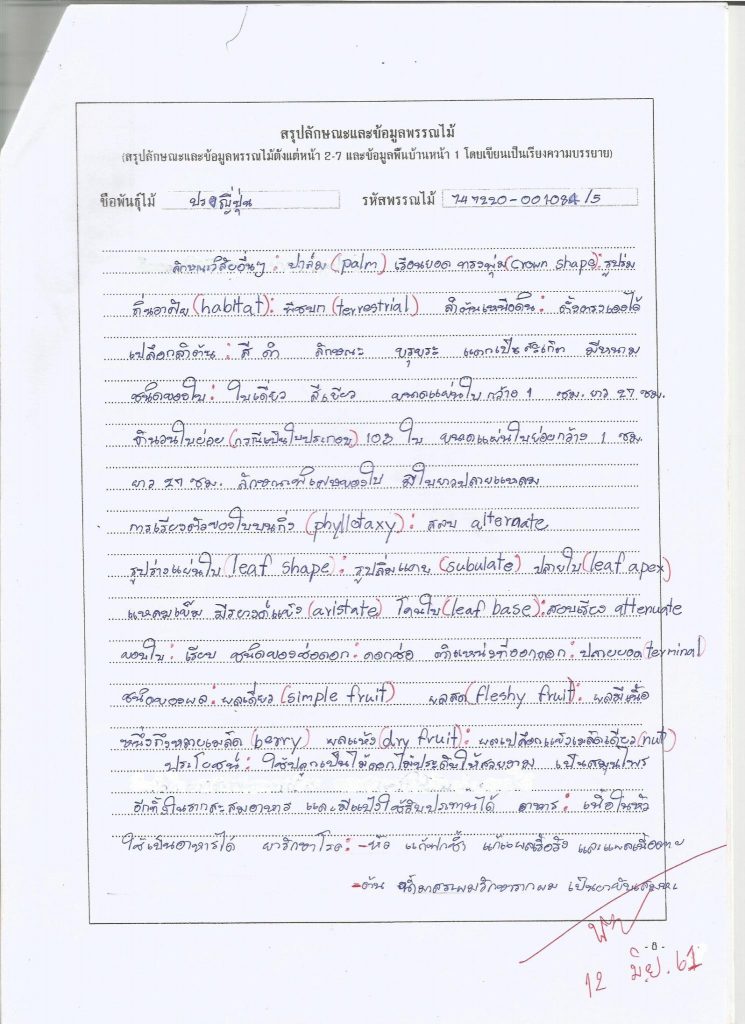 สรุปลักษณะและข้อมูลพรรณไม้
(สรุปลักษณะและข้อมูลพรรณไม้ตั้งแต่หน้า 2-7 และข้อมูลพื้นบ้านหน้า 1 โดยเขียนเป็นเรียงความบรรยาย)
ชื่อพันธุ์ไม้ ปรงญี่ปุ่น รหัสพรรณไม้ 7-47220-001-084/5
ลักษณะวิสัยอื่นๆ : ปาล์ม (palm) เรือนยอด ทรงพุ่ม (crown shape) : รูปร่ม
ถิ่นอาศัย (habitat) : พืชบก (terrestrial) ลำต้นเหนือดิน : ตั้งตรงเองได้
เปลือกลำต้น : สี ดำ ลักษณะ ขรุขระ แตกเป็นสะเก็ด มีหนาม
ชนิดของใบ : ใบเดี่ยว สีเขียว ขนาดแผ่นใบ กว้าง 1 ซม. ยาว 27 ซม.
จำนวนใบย่อย (กรณีเป็นใบประกอบ) 103 ใบ ขนาดแผ่นใบย่อยกว้าง 1 ซม.
ยาว 27 ซม. ลักษณะพิเศษของใบ มีใบยาวปลายแหลม
การเรียงตัวของใบบนกิ่ง (phyllotaxy) : สลับ alternate
รูปร่างแผ่นใบ (leaf shape) : รูปลิ่มแคบ (subulate) ปลายใบ (leaf apex)
แหลมเข็ม มีรยางค์แข็ง (aristate) โคนใบ (leaf base) : สอบเรียว attenuate
ขอบใบ : เรียบ ชนิดของช่อดอก : ดอกช่อ ตำแหน่งที่ออกดอก : ปลายยอด (terminal)
ชนิดของผล : ผลเดี่ยว (simple fruit) ผลสด (fleshy fruit) : ผลมีเนื้อ
หนึ่งถึงหลายเมล็ด (berry) ผลแห้ง (dry fruit) : ผลเปลือกแข็งเมล็ดเดียว (nut)
ประโยชน์ : ใช้ปลูกเป็นไม้ดอกไม้ประดับให้สวยงาม เป็นสมุนไพร
อีกทั้งในรากสะสมอาหาร และมีแป้งใช้รับประทานได้ อาหาร : เนื้อในหัว
ใช้เป็นอาหารได้ ยารักษาโรค : - หัว แก้ฟกช้ำ แก้แผลเรื้อรัง และแผลเนื้อตาย
- ต้น น้ำมาสระผมรักษารากผม เป็นยาขับเสมหะ
- 8 -
12 มิ.ย. 61